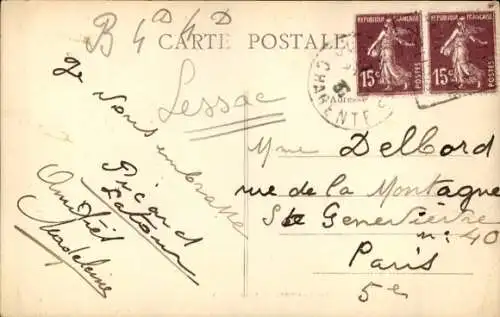 B 4D 4D
CARTE POSTALE
Lessac
Je vous embrasse
Picard
Latour
Madeleine
REPUBLIQUE FRANÇAISE
15c POSTES
REPUBLIQUE FRANÇAISE
15c POSTES
CHARENTE
Adresse
Mme Delbord
rue de la Montagne
Ste Geneviève
n: 40
Paris
5e